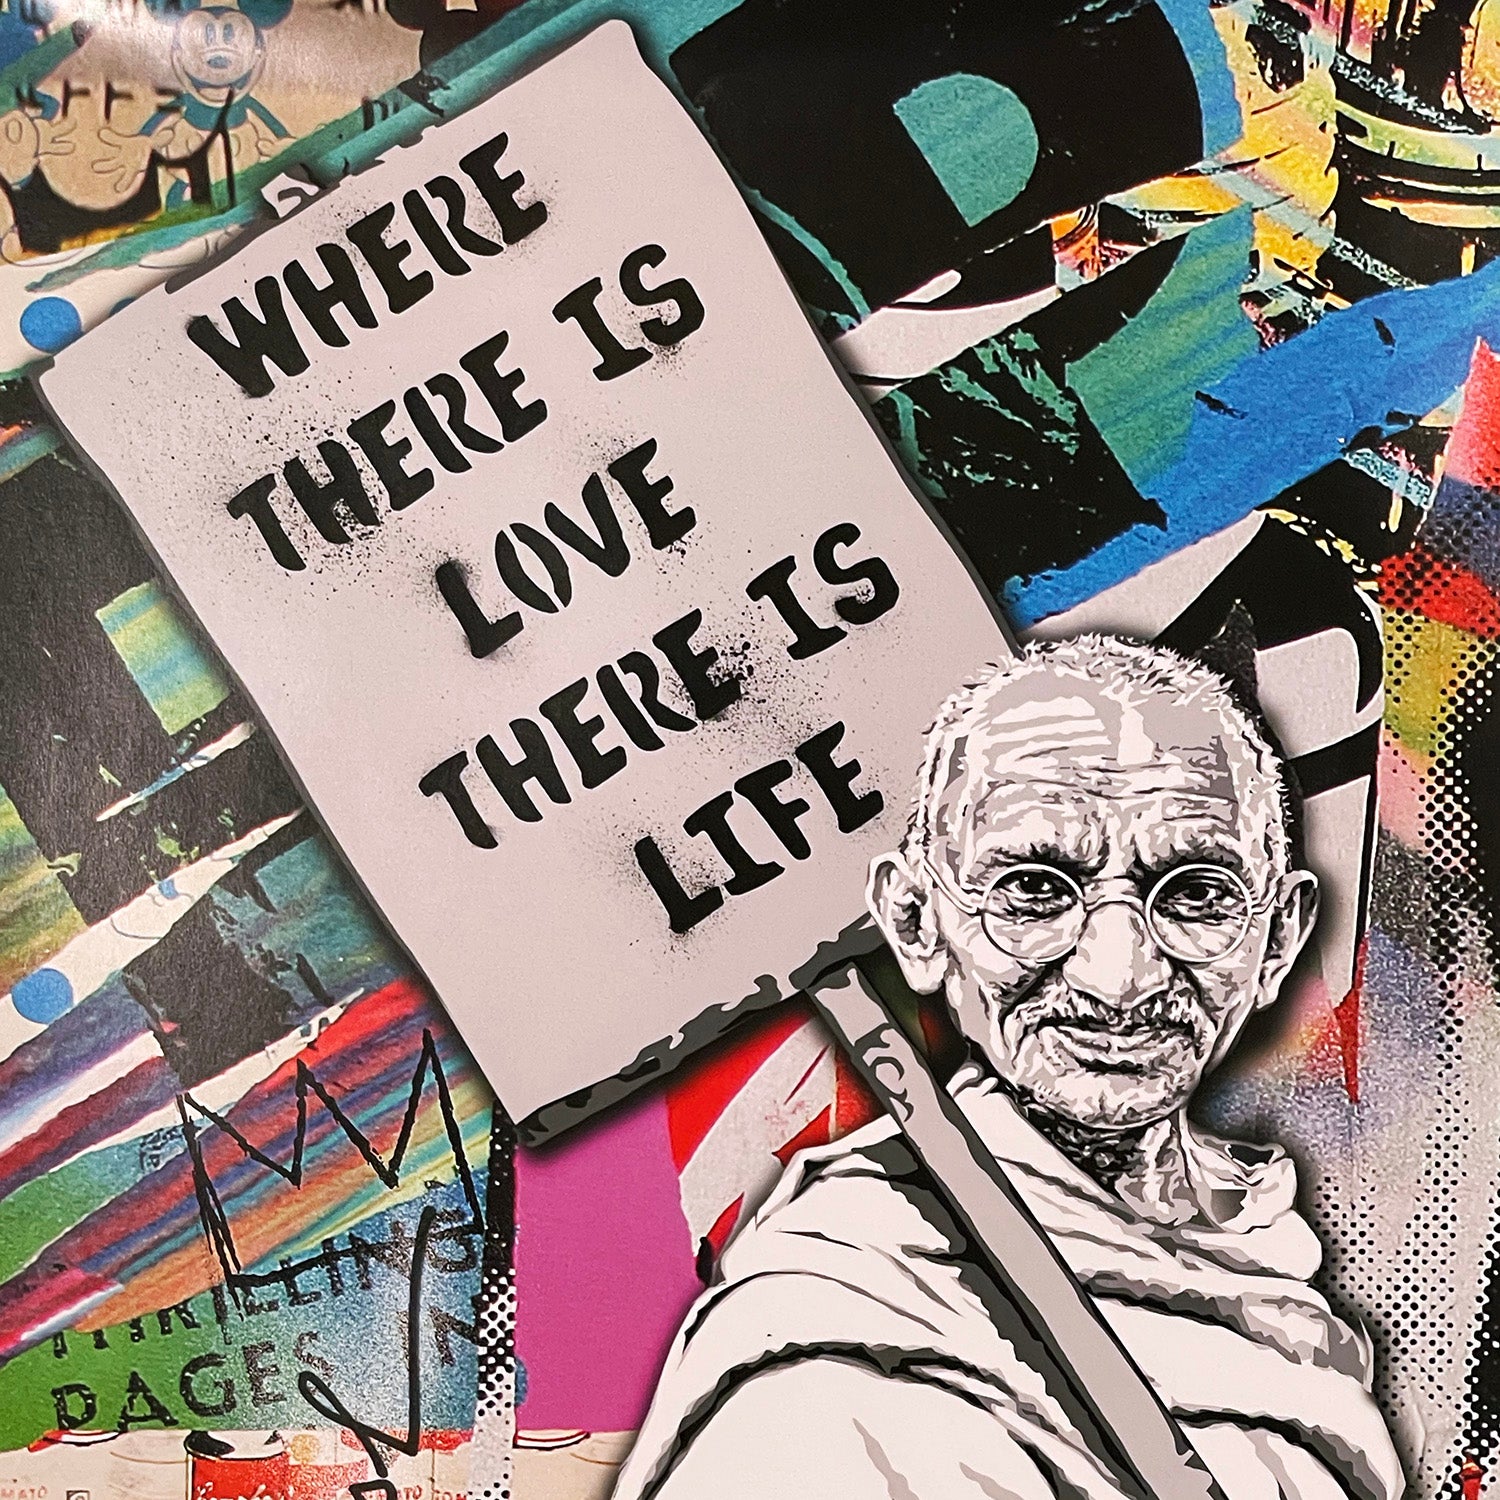 WHERE
THERE IS
LOVE
THERE IS
LIFE
THRILLING
PAGES IN
MATO